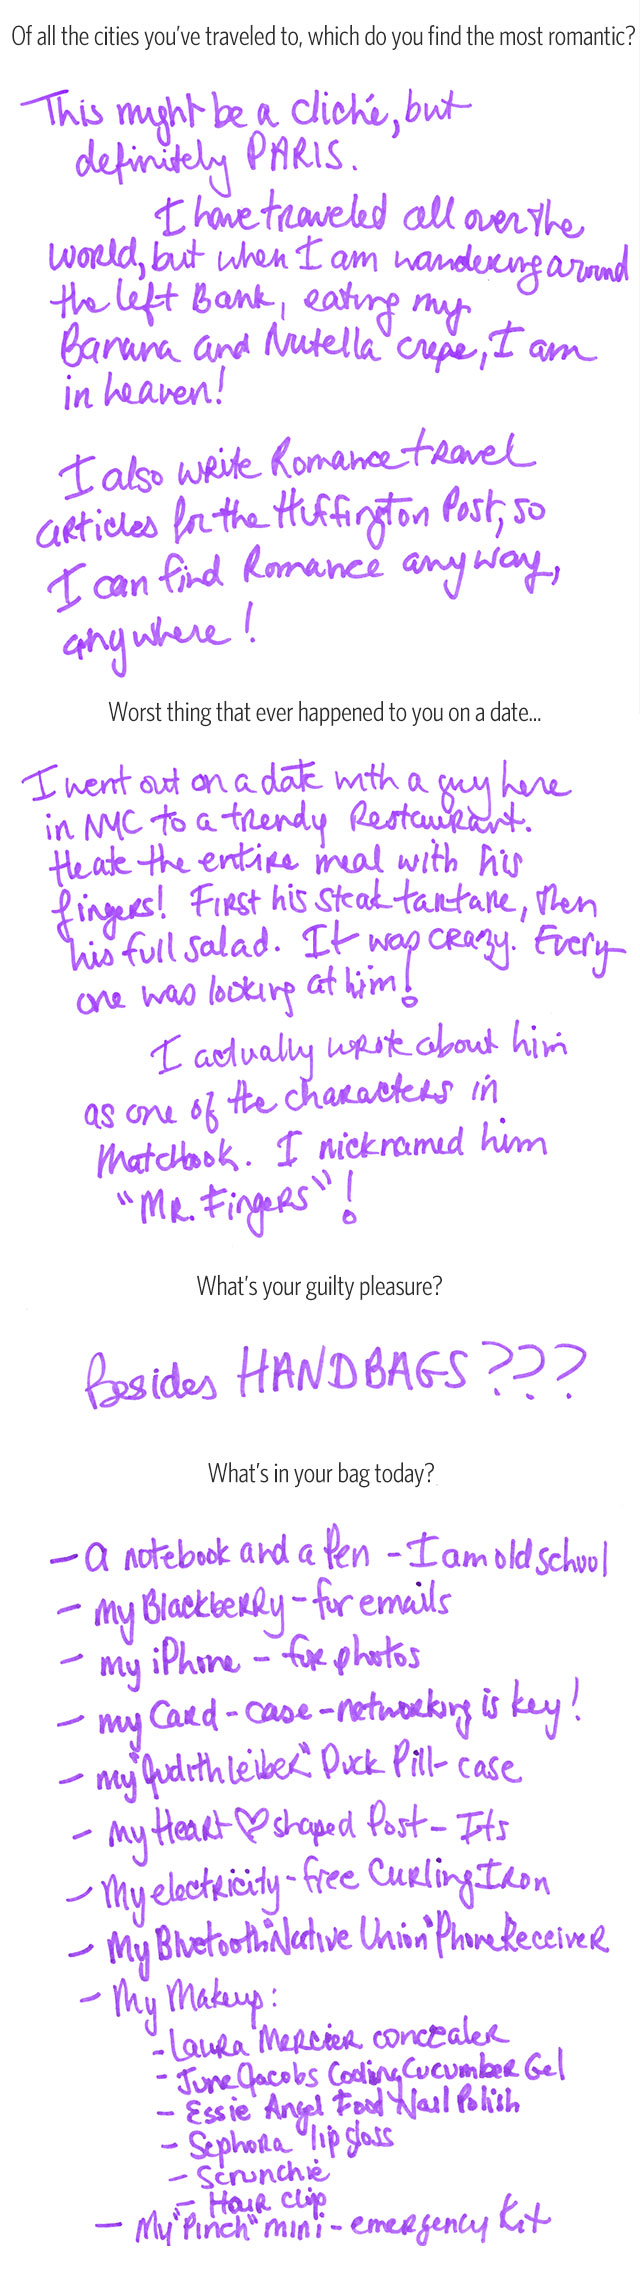 Of all the cities you've traveled to, which do you find the most romantic?
This might be a cliché, but
definitely PARIS.
I have traveled all over the
world, but when I am wandering around
the left Bank, eating my
Banana and Nutella crepe, I am
in heaven!
I also write Romance travel
articles for the Huffington Post, so
I can find Romance anyway,
anywhere!
Worst thing that ever happened to you on a date...
I went out on a date with a guy here
in NYC to a trendy Restaurant.
He ate the entire meal with his
fingers! First his steak tartare, then
his full salad. It was crazy. Every
one was looking at him!
I actually wrote about him
as one of the characters in
Matchbook. I nicknamed him
"MR. Fingers"!
What's your guilty pleasure?
Besides HANDBAGS???
What's in your bag today?
- a notebook and a Pen - I am old school
- my Blackberry - for emails
- my iPhone - for photos
- my Card-case - networking is key!
- my "Judith Leiber" Duck Pill-case
- my Heart ♡ shaped Post-Its
- My electricity-free Curling Iron
- My Bluetooth "Native Union" Phone Receiver
- My Makeup:
- Laura Mercier concealer
- June Jacobs Cooling Cucumber Gel
- Essie Angel Food Nail Polish
- Sephora lip gloss
- Scrunchie
- Hair clip
- My "Pinch" mini-emergency Kit